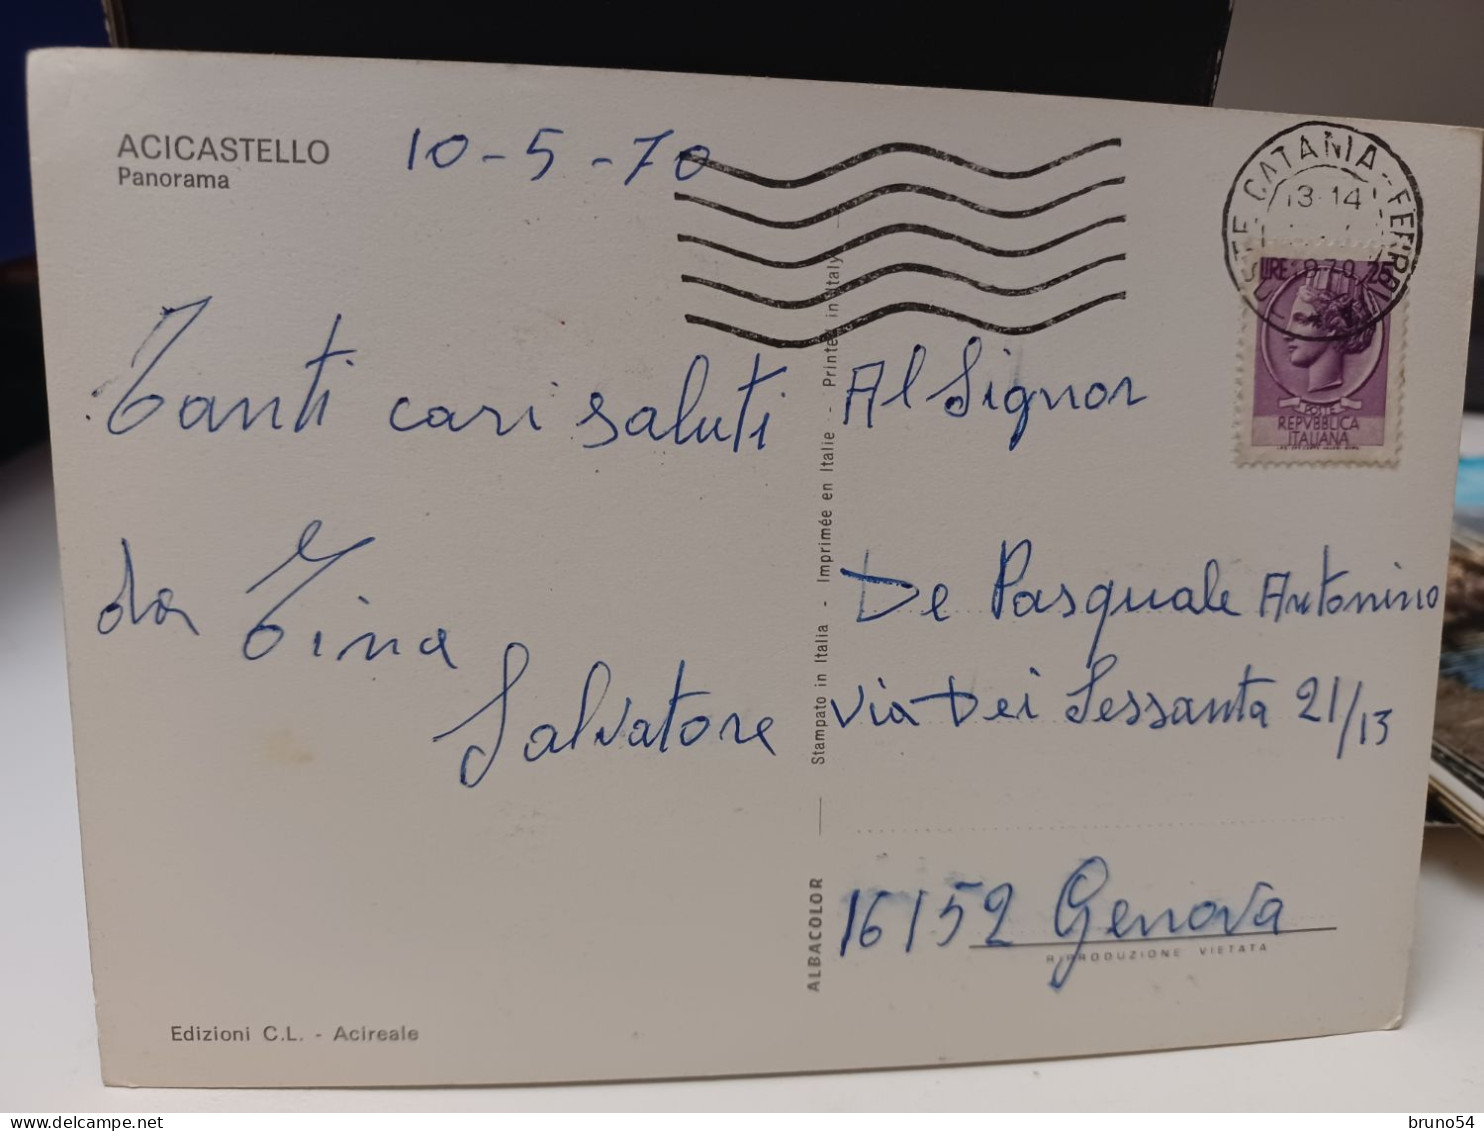 ACICASTELLO
Panorama
10-5-70
Tanti cari saluti
da Tina
Salvatore
Edizioni C.L. - Acireale
ALBACOLOR
Stampato in Italia - Imprimée en Italie - Printed in Italy
CATANIA-FERROV
13-14
LIRE 25
POSTE
REPVBBLICA
ITALIANA
Al Signor
De Pasquale Antonino
via Dei Sessanta 21/13
16152 Genova
RIPRODUZIONE VIETATA
bruno54